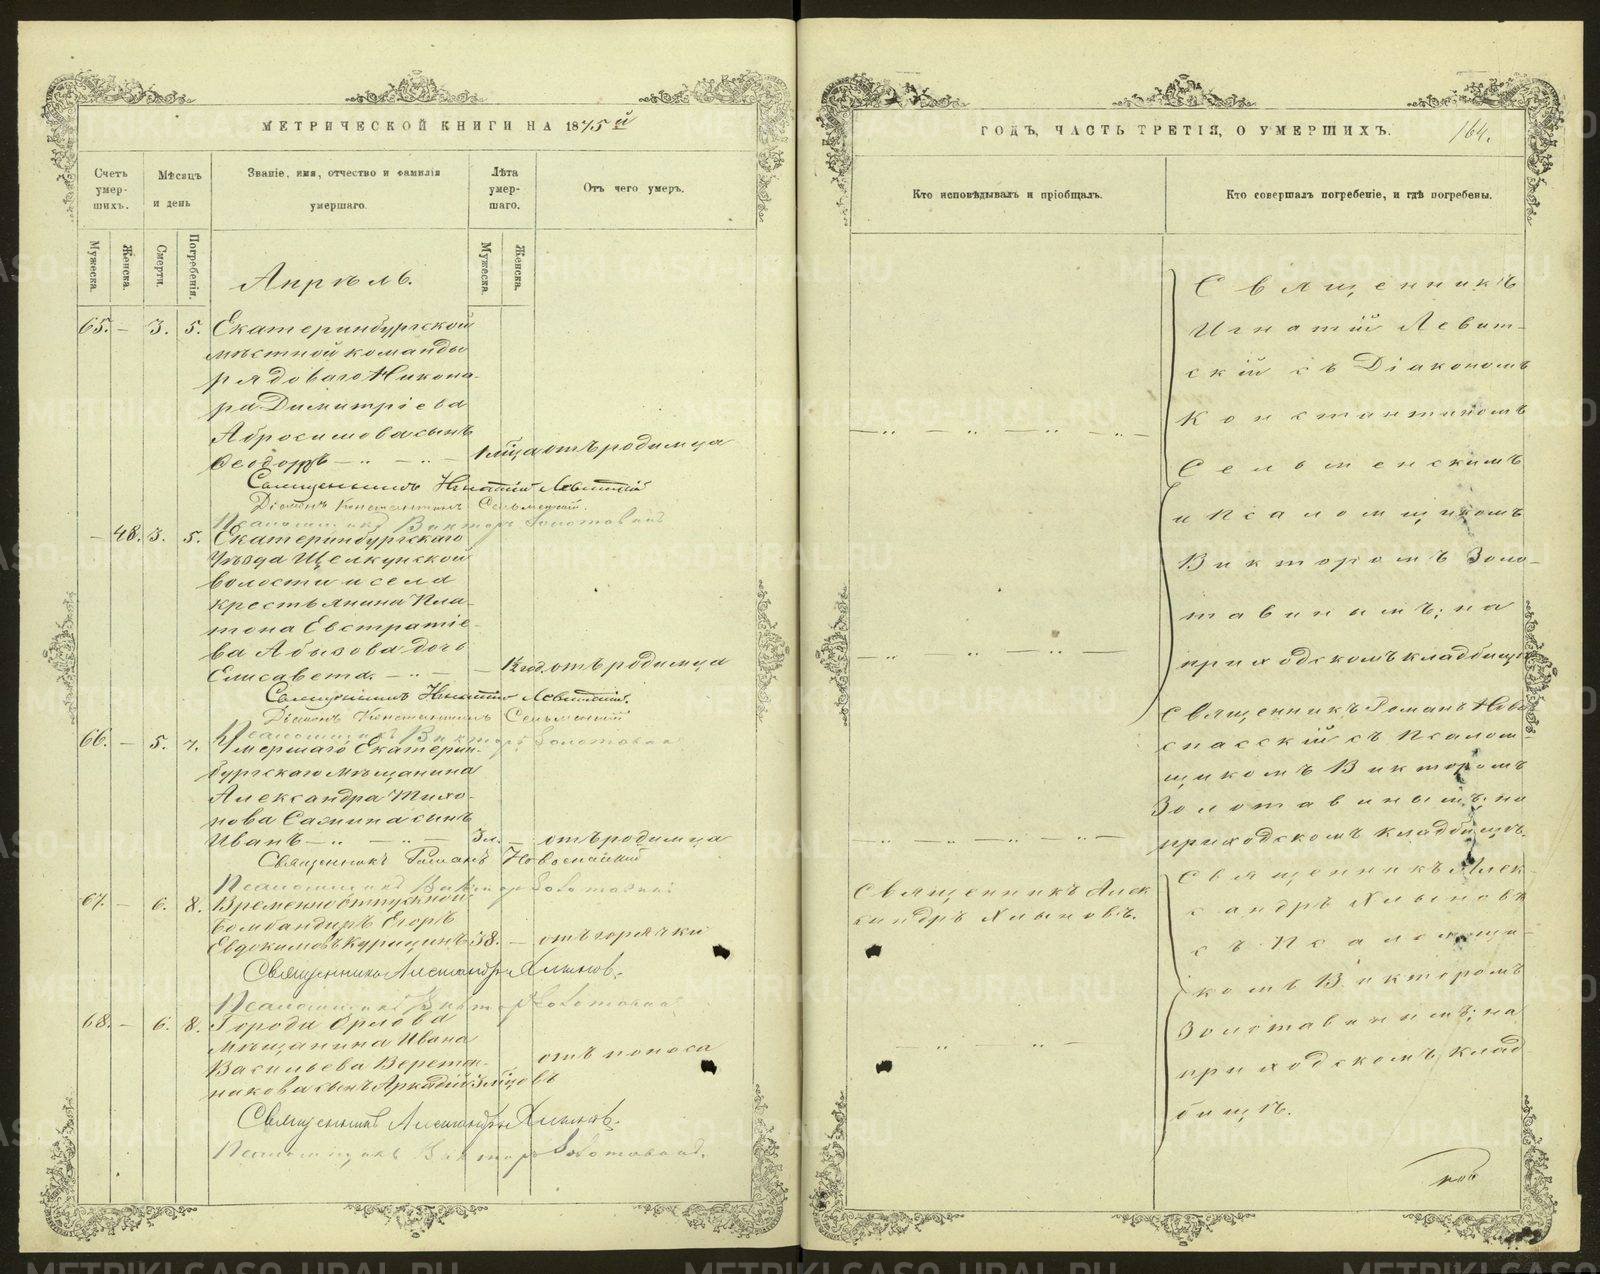 МЕТРИЧЕСКОЙ КНИГИ НА 1875й
Счетъ умерших.
Мѣсяцъ и день
Званіе, имя, отчество и фамилія умершаго.
Лѣта умершаго.
Отъ чего умеръ.
Мужеска.
Женска.
Смерти.
Погребенія.
Мужеска.
Женска.
Апрѣль.
65. — 3. 5. Екатеринбургской
мѣстной команды
рядоваго Никона-
ра Димитріева
Абросимова сынъ
Ѳеодоръ — 1 мѣца отъ родимца
Священникъ Игнатій Левитскій
Діаконъ Константинъ Сельменскій.
Псаломщикъ Викторъ Золотавинъ
— 48. 3. 5. Екатеринбургскаго
уѣзда Щелкунской
волости и села
крестьянина Пла-
тона Евстратіе-
ва Абызова дочь
Елисавета. — отъ родимца
Священникъ Игнатій Левитскій.
Діаконъ Константинъ Сельменскій
Псаломщикъ Викторъ Золотавинъ
66. — 5. 7. Умершаго Екатерин-
бургскаго мѣщанина
Александра Тихо-
нова сынъ
Иванъ — 3 л. — отъ родимца
Священникъ Романъ Новоспасскій
Псаломщикъ Викторъ Золотавинъ
67. — 6. 8. Временно отпускной
бомбандиръ Егоръ
Евдокимовъ Курицинъ 38. — отъ горячки
Священникъ Александръ Хлыновъ.
Псаломщикъ Викторъ Золотавинъ
68. — 6. 8. Города Орлова
мѣщанина Ивана
Васильева Верете-
никова сынъ Аркадій 3 мѣцовъ отъ поноса
Священникъ Александръ Хлыновъ.
Псаломщикъ Викторъ Золотавинъ.
ГОДЪ, ЧАСТЬ ТРЕТІЯ, О УМЕРШИХЪ. 164.
Кто исповѣдывалъ и пріобщалъ.
Кто совершалъ погребеніе, и гдѣ погребены.
Священникъ
Игнатій Левит-
скій съ Діакономъ
Константиномъ
Сельменскимъ
и Псаломщикомъ
Викторомъ Золо-
тавинымъ; на
приходскомъ кладбищѣ
Священникъ Романъ Ново-
спасскій съ Псалом-
щикомъ Викторомъ
Золотавинымъ; на
приходскомъ кладбищѣ.
Священникъ Алек
сандръ Хлыновъ.
Священникъ Алек-
сандръ Хлыновъ
съ Псаломщи-
комъ Викторомъ
Золотавинымъ; на
приходскомъ клад-
бищѣ.
METRIKI.GASO-URAL.RU